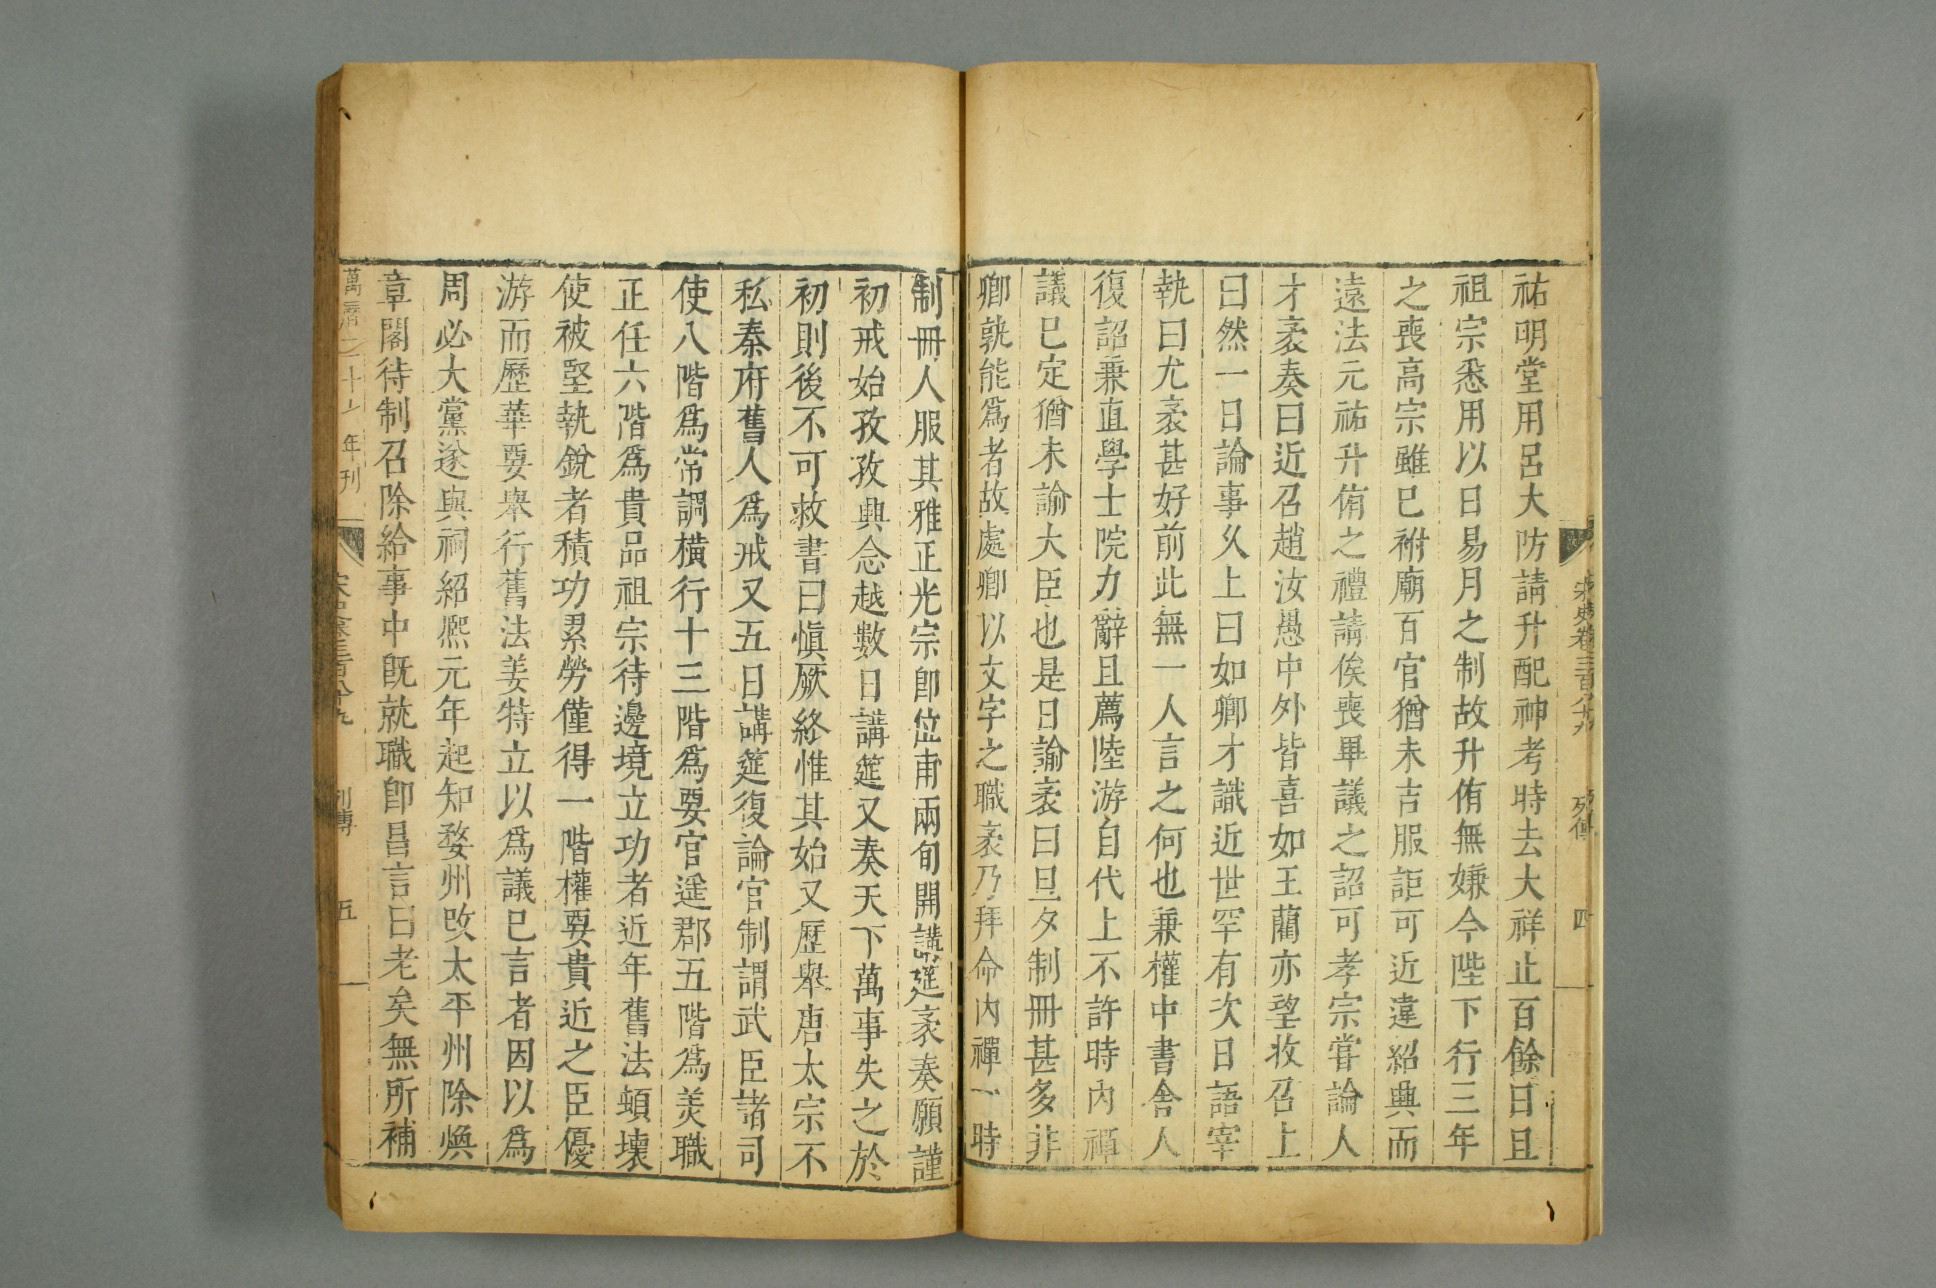 宋史卷三百八十九 列傳 四
祐明堂用呂大防請升配神考時去大祥止百餘日且
祖宗悉用以日易月之制故升侑無嫌今陛下行三年
之喪高宗雖已祔廟百官猶未吉服詎可近違紹興而
遠法元祐升侑之禮請俟喪畢議之詔可孝宗嘗論人
才袤奏曰近召趙汝愚中外皆喜如王藺亦望收召上
曰然一日論事久上曰如卿才識近世罕有次日語宰
執曰尤袤甚好前此無一人言之何也兼權中書舍人
復詔兼直學士院力辭且薦陸游自代上不許時內禪
議已定猶未諭大臣也是日諭袤曰旦夕制冊甚多非
卿孰能爲者故處卿以文字之職袤乃拜命內禪一時
制冊人服其雅正光宗卽位甫兩旬開講筵袤奏願謹
初戒始孜孜興念越數日講筵又奏天下萬事失之於
初則後不可救書曰愼厥終惟其始又歷舉唐太宗不
私秦府舊人爲戒又五日講筵復論官制謂武臣諸司
使八階爲常調橫行十三階爲要官遙郡五階爲美職
正任六階爲貴品祖宗待邊境立功者近年舊法頓壞
使被堅執銳者積功累勞僅得一階權要貴近之臣優
游而歷華要舉行舊法姜特立以爲議已言者因以爲
周必大黨遂與祠紹熙元年起知婺州改太平州除煥
章閣待制召除給事中旣就職卽昌言曰老矣無所補
萬曆二十 年刊 宋史卷三百八十九 列傳 五